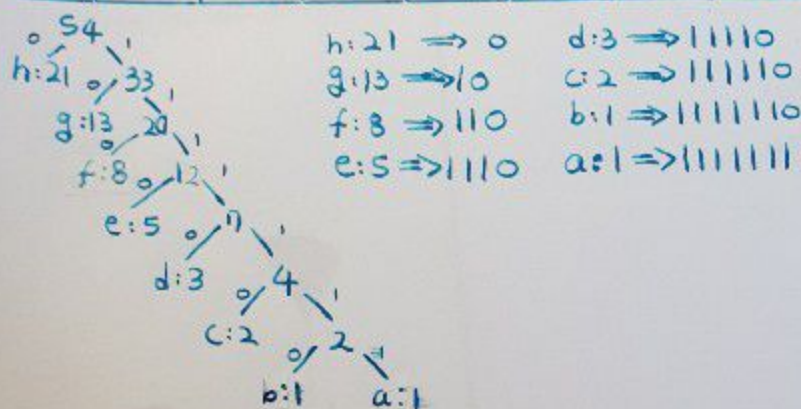 54
0 1
h:21 33
0 1
g:13 20
0 1
f:8 12
0 1
e:5 7
0 1
d:3 4
0 1
c:2 2
0 1
b:1 a:1
h:21 ⇒ 0
g:13 ⇒ 10
f:8 ⇒ 110
e:5 ⇒ 1110
d:3 ⇒ 11110
c:2 ⇒ 111110
b:1 ⇒ 1111110
a:1 ⇒ 1111111